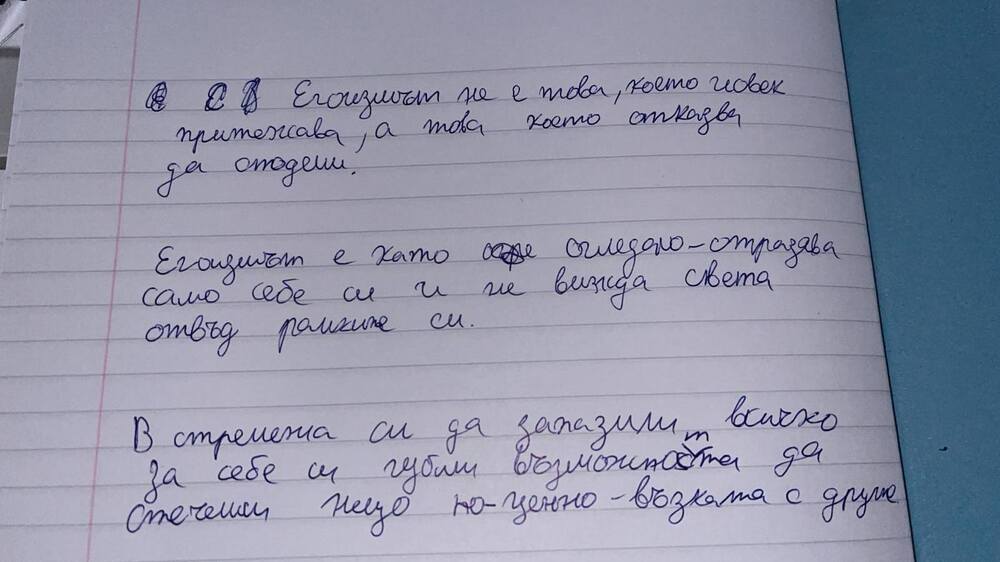 Егоизмът не е това, което човек
притежава, а това което отказва
да сподели.
Егоизмът е като огледало-отразява
само себе си и не вижда света
отвъд рамките си.
В стремежа си да запазим всичко
за себе си губим възможността да
спечелим нещо по-ценно-възката с